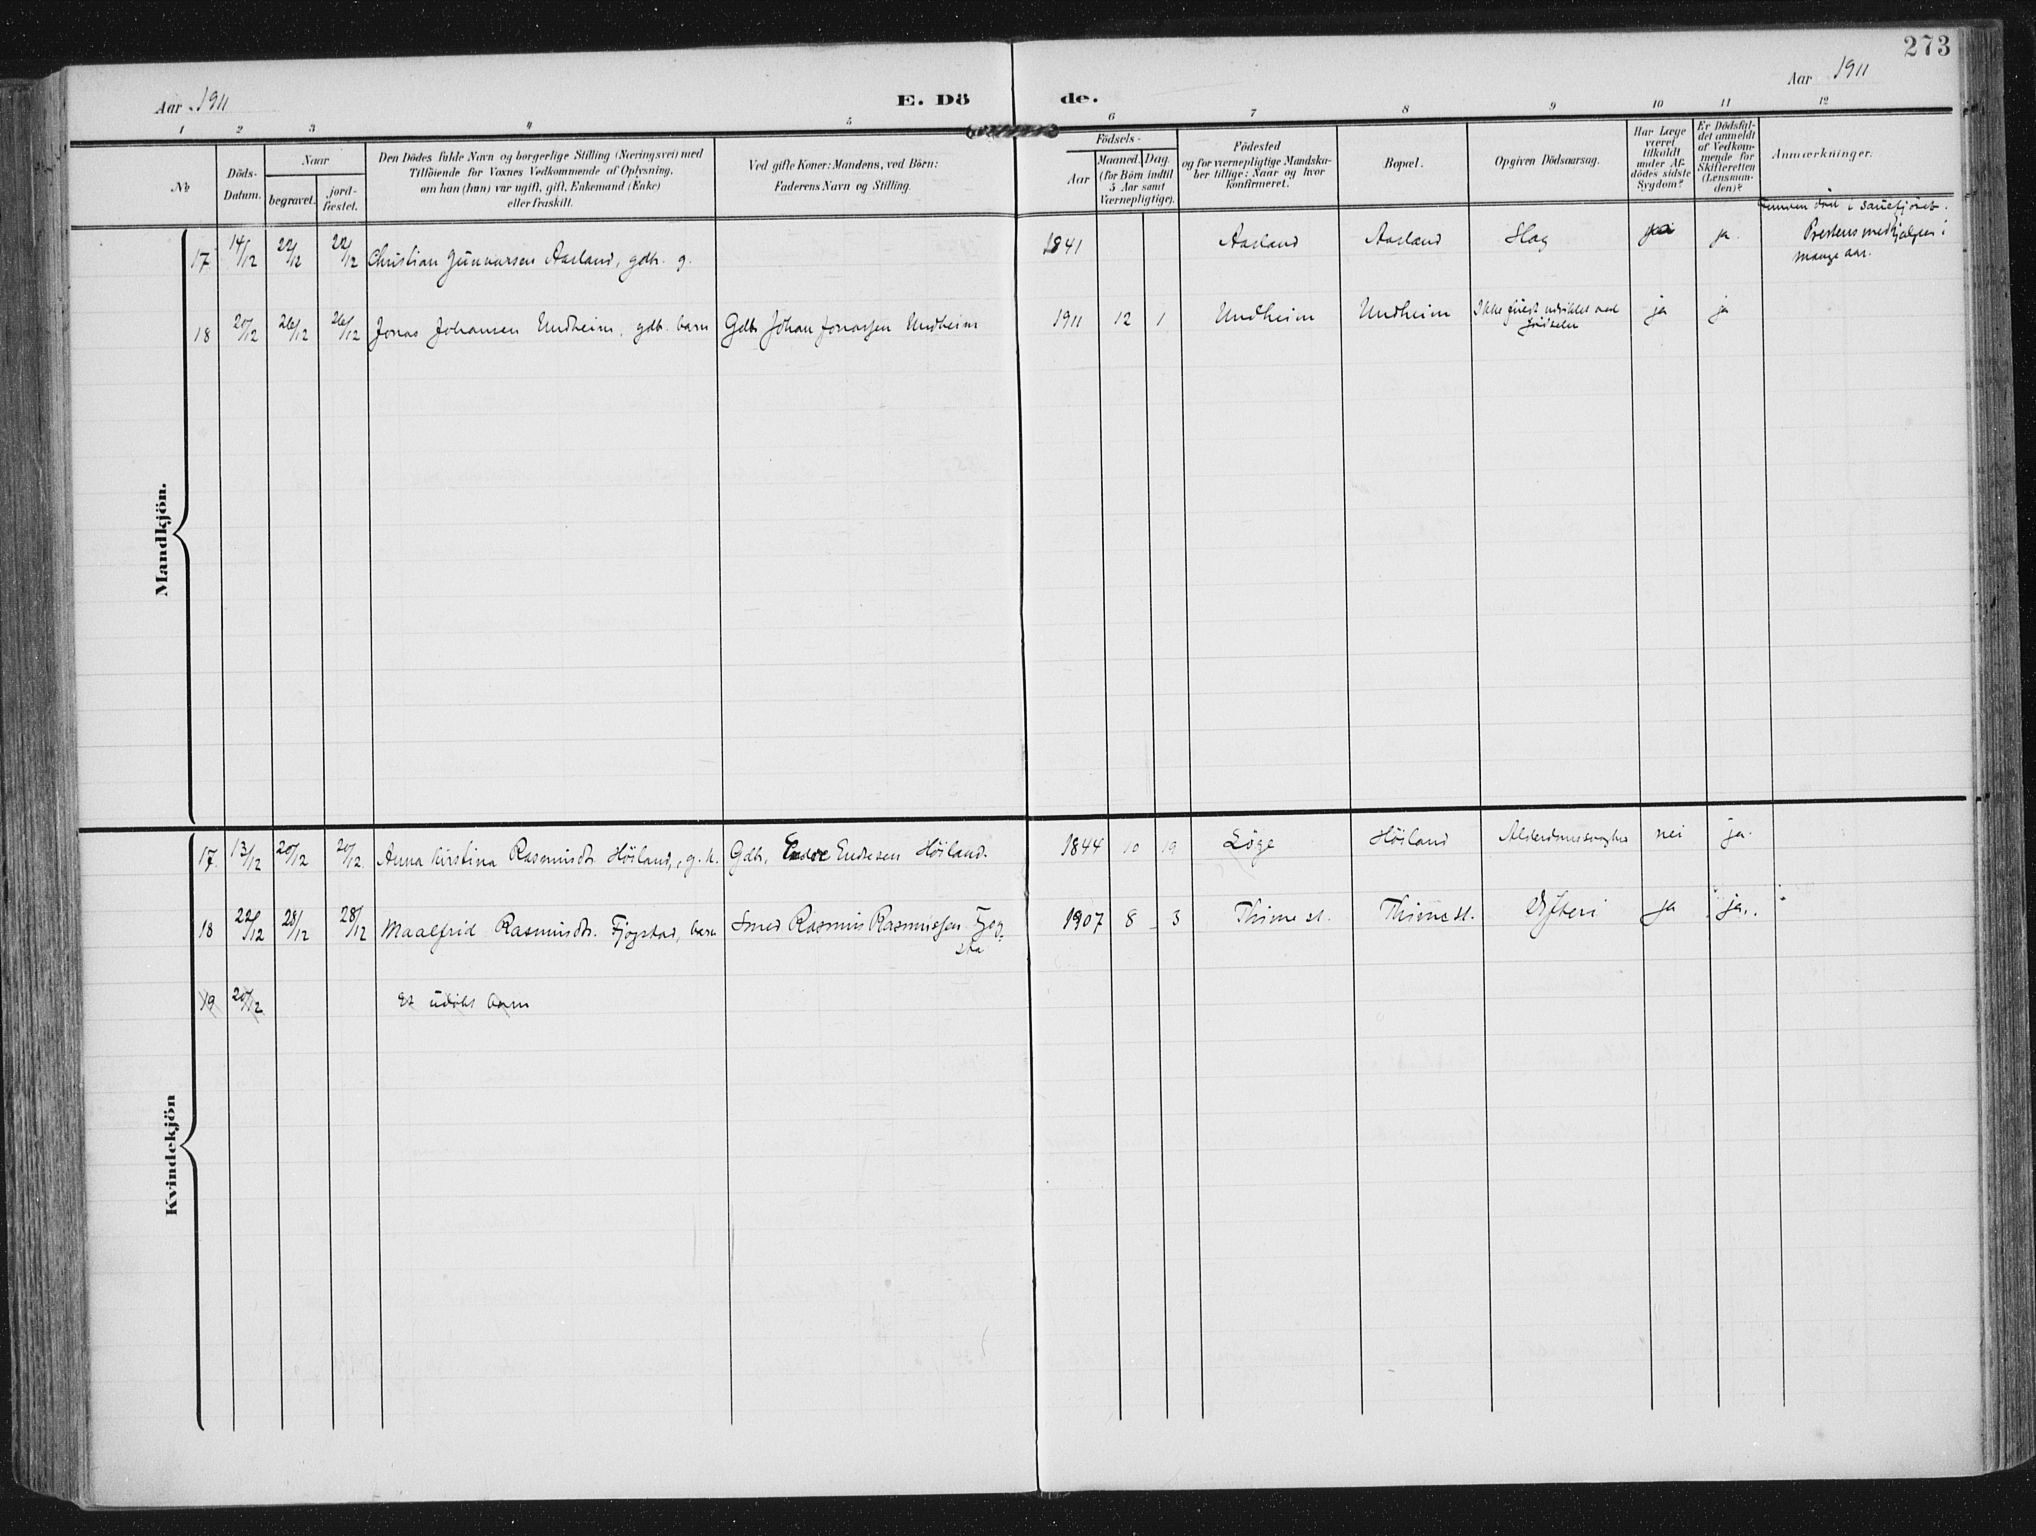 273
Aar 1911
E. Dö de.
Aar 1911
1 2 3 4 5 6 7 8 9 10 11 12
No
Döds-
Datum.
Naar
begravet.
jord-
fæstet.
Den Dödes fulde Navn og borgerlige Stilling (Næringsvei) med
Tilföiende for Voxnes Vedkommende af Oplysning,
om han (hun) var ugift, gift, Enkemand (Enke)
eller fraskilt.
Ved gifte Koner: Mandens, ved Börn:
Faderens Navn og Stilling.
Födsels-
Aar
Maaned. Dag.
(for Börn indtil
5 Aar samt
Værnepligtige).
Födested
og for værnepligtige Mandska-
ber tillige: Naar og hvor
konfirmeret.
Bopæl.
Opgiven Dödsaarsag.
Har Læge
været
tilkaldt
under Af-
dödes sidste
Sygdom?
Er Dödsfal-
det anmeldt
af Vedkom-
mende for
Skifteretten
(Lensman-
den)?
Anmærkninger.
Mandkjön.
17 14/12 22/12 22/12 Christian Gunnarsen Aasland, gdbr. g. 1841 Aasland Aasland Slag ja.
død i
Prestens medhjælper i
mange aar.
18 20/12 26/12 26/12 Jonas Johansen Undheim, gdb. barn Gdb Johan Jonassen Undheim 1911 12 1 Undheim Undheim Ikke fuldt udviklet ved
fødselen ja ja
Kvindekjön
17. 13/12 20/12 20/12. Anna Kirstina Rasmusdtr. Höiland, g. k. Gdb. Endre Endresen Höiland. 1844 10 19 Löge Höiland nei ja.
18 22/12 28/12 28/12 Maalfrid Rasmusdtr. Fjogstad, barn Smed Rasmus Rasmussen Fjog-
stad 1907 8 3 Thime st. Thime st. Difteri ja ja.
19 20/12 et udöbt barn